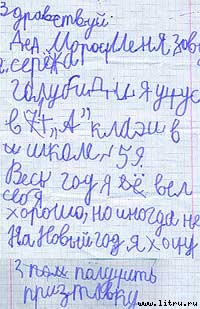 Здравствуй
Дед Мороз Меня зов
сережа
голубид И я учус
в 7+ „А" класи в
школе 59.
Весь год я се вел
себя
хорошо, но иногда не
На Новый год я хочу
палучить
призтавку
www.litru.ru